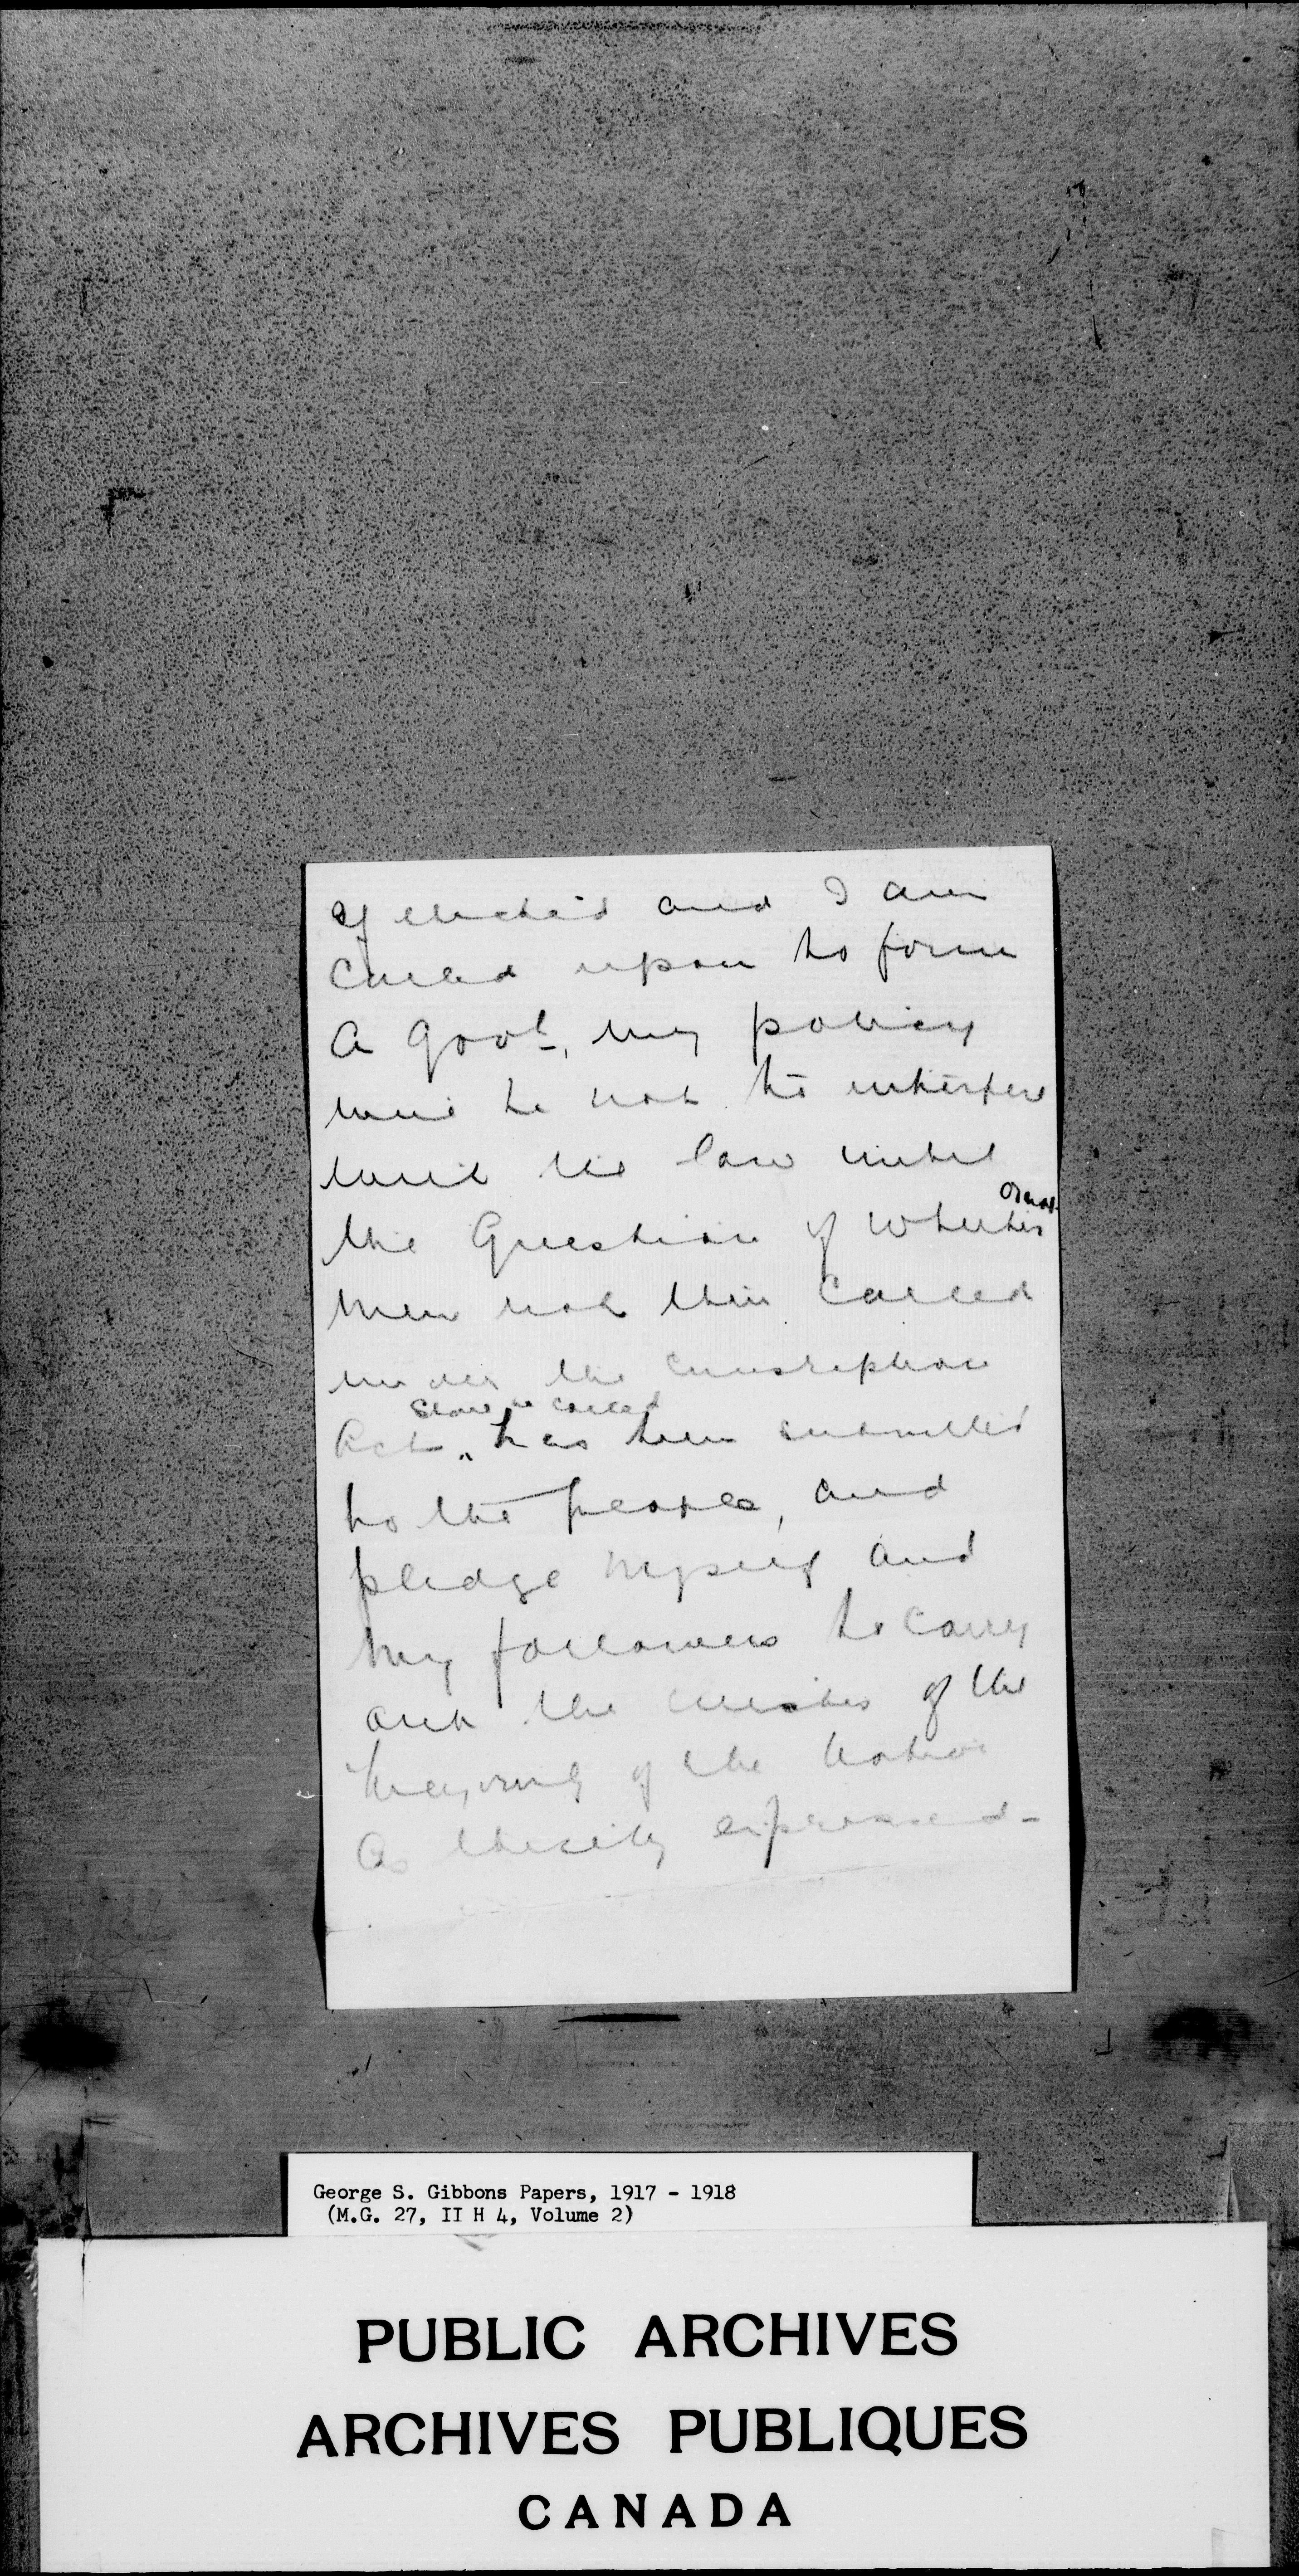 If elected and I am
called upon to form
a Govt., my policy
will be not to interfere
with the law until
the Question of whether or not
men not then called
under the Conscription
Act, shall be called has been submitted
to the people, and
pledge myself and
my followers to carry
out the wishes of the
majority of the Nation
as thereby expressed -
George S. Gibbons Papers, 1917 - 1918
(M.G. 27, II H 4, Volume 2)
PUBLIC ARCHIVES
ARCHIVES PUBLIQUES
CANADA